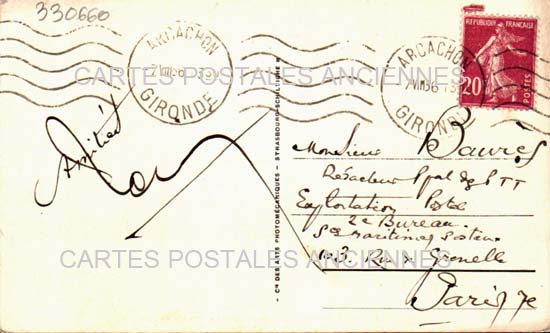 330660
ARCACHON
GIRONDE
ARCACHON
GIRONDE
REPUBLIQUE FRANÇAISE
20
POSTES
CARTES POSTALES ANCIENNES
Amitiés
Cie DES ARTS PHOTOMÉCANIQUES - STRASBOURG-SCHILTIGHEIM
Monsieur Baurès
Rédacteur Ppal des PTT
Exploitation Postale
2e Bureau
Sce Maritimes
103 Rue de Grenelle
Paris 7e
CARTES POSTALES ANCIENNES